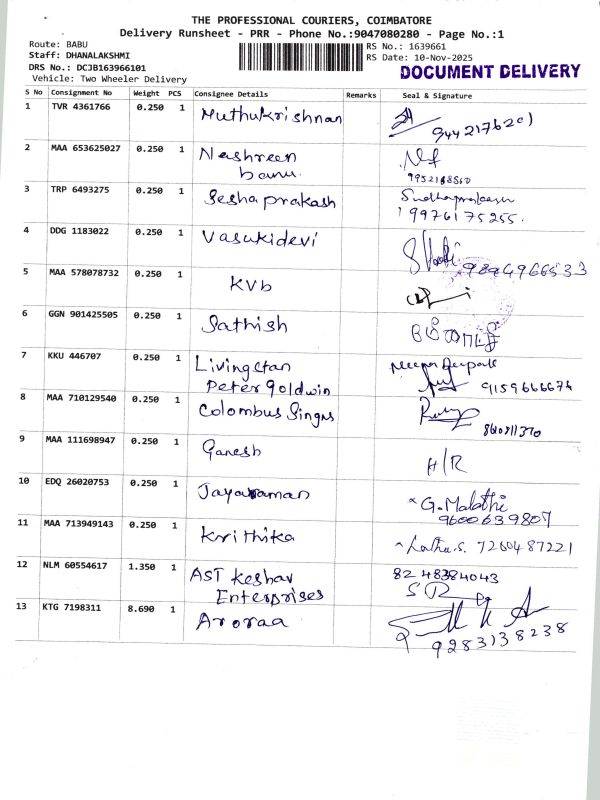 THE PROFESSIONAL COURIERS, COIMBATORE
Delivery Runsheet - PRR - Phone No.:9047080280 - Page No.:1
Route: BABU
Staff: DHANALAKSHMI
DRS No.: DCJB163966101
Vehicle: Two Wheeler Delivery
RS No.: 1639661
RS Date: 10-Nov-2025
DOCUMENT DELIVERY
S No Consignment No Weight PCS Consignee Details Remarks Seal & Signature
1 TVR 4361766 0.250 1 Muthukrishnan
9442176201
2 MAA 653625027 0.250 1 Nashreen
banu.
3 TRP 6493275 0.250 1 Sesha prakash
9976175255.
4 DDG 1183022 0.250 1 Vasukidevi
9894966533
5 MAA 578078732 0.250 1 KVb
6 GGN 901425505 0.250 1 Sathish
7 KKU 446707 0.250 1 Livingstan
Peter goldwin
9159666674
8 MAA 710129540 0.250 1 Colombus Singns
9 MAA 111698947 0.250 1 Ganesh H/R
10 EDQ 26020753 0.250 1 Jayaraman G. Malathi
9600639807
11 MAA 713949143 0.250 1 Krithika Latha.s. 7260487221
12 NLM 60554617 1.350 1 AST Keshav 8248384043
Enterprises
13 KTG 7198311 8.690 1 Aroraa
9283138238